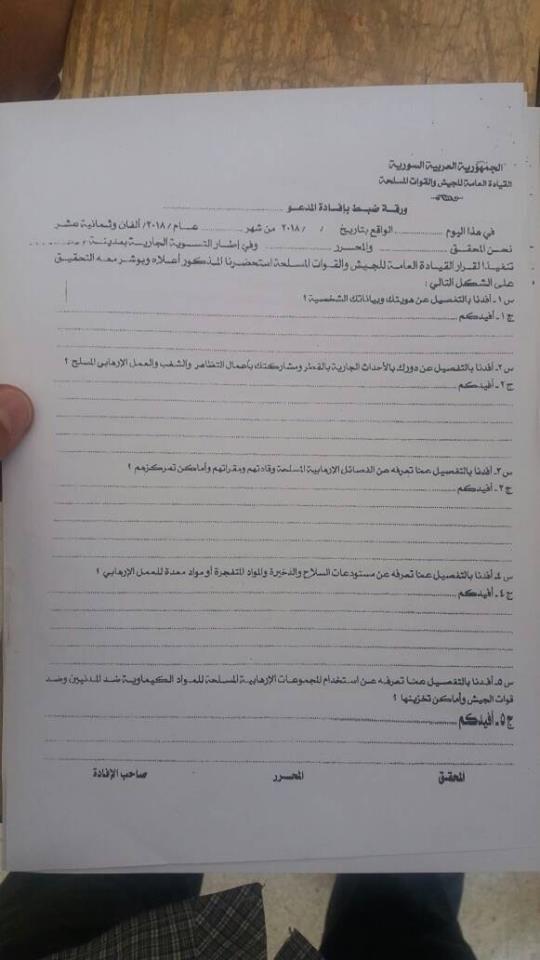 الجمهورية العربية السورية
القيادة العامة للجيش والقوات المسلحة
ورقة ضبط بإفادة المدعو ........................
في هذا اليوم ............... الواقع بتاريخ / /٢٠١٨ من شهر ............ عام /٢٠١٨/ ألفان وثمانية عشر
نحن المحقق ........................ والمحرر ........................ وفي إطار التسوية الجارية بمدينة ............
تنفيذاً لقرار القيادة العامة للجيش والقوات المسلحة استحضرنا المذكور أعلاه وبوشر معه التحقيق
على الشكل التالي :
س١- أفدنا بالتفصيل عن هويتك وبياناتك الشخصية ؟
ج١- أفيدكم ........................
س٢- أفدنا بالتفصيل عن دورك بالأحداث الجارية بالقطر ومشاركتك بأعمال التظاهر والشغب والعمل الإرهابي المسلح ؟
ج٢- أفيدكم ........................
س٣- أفدنا بالتفصيل عما تعرفه عن الفصائل الإرهابية المسلحة وقادتهم ومقراتهم وأماكن تمركزهم ؟
ج٣- أفيدكم ........................
س٤- أفدنا بالتفصيل عما تعرفه عن مستودعات السلاح والذخيرة والمواد المتفجرة أو مواد معدة للعمل الإرهابي ؟
ج٤- أفيدكم ........................
س٥- أفدنا بالتفصيل عما تعرفه عن استخدام المجموعات الإرهابية المسلحة للمواد الكيماوية ضد المدنيين وضد
قوات الجيش وأماكن تخزينها ؟
ج٥- أفيدكم ........................
المحقق المحرر صاحب الإفادة